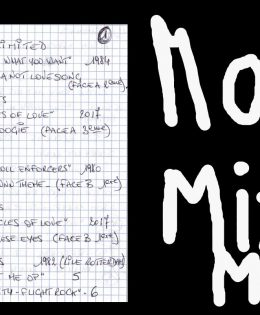 1
IMITED
WHAT YOU WANT" 1984
A NOT LOVE SONG
(FACE A 2ème)
TS
S OF LOVE" 2017
OOGIE (FACE A 3ème)
OLL ENFORCERS" 1980
UND THEME - (FACE B 1ère)
S
CLES OF LOVE" 2017
ESE EYES (FACE B 1ère)
S 1982 (LIVE ROTTERDAM)
ME OP" 5
TY-FLIGHT ROCK" - 6
Mo
Mi
M